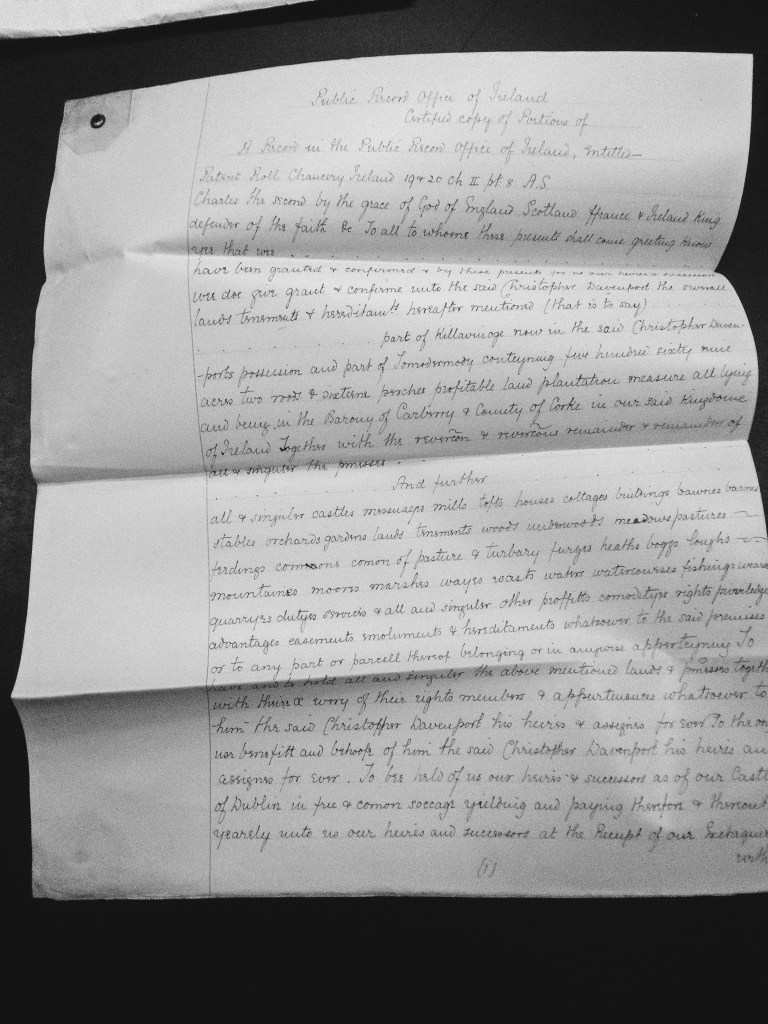 Public Record Office of Ireland
Certified copy of Portions of
A Record in the Public Record Office of Ireland, Entitled—
Patent Roll Chancery Ireland 19 & 20 Ch II pt. 8 A.S.
Charles the second by the grace of God of England Scotland ffrance & Ireland King
defender of the faith &c To all to whome these presents shall come greeting Know
yee that wee . . . . . . . . . . . . . .
have been granted & confirmed & by these presents for us our heires & successors
wee doe give grant & confirme unto the said Christopher Davenport the severall
lands tenements & hereditamts hereafter mentioned (that is to say)
. . . . . . . part of Killavinoge now in the said Christopher Daven-
-ports possession and part of Tomodermody conteyning five hundred sixty nine
acres two roods & sixteene perches profitable land plantation measure all lying
and being in the Barony of Carberry & County of Corke in our said Kingdome
of Ireland Together with the revercon & revercons remainder & remainders of
all & singuler the pmisses . . . . . .
. . . . . . And further . . . . .
all & singuler castles messuages mills tofts houses cottages buildings bawnes barnes
stables orchards gardens lands tenements woods underwoods meadows pastures —
feedings commons comon of pasture & turbary furzes heaths boggs loughs —
mountaines moores marshes wayes wasts waters watercourses fishings weares
quarryes dutyes services & all and singuler other proffitts comodityes rights priviledges
advantages easements emoluments & hereditaments whatsoever to the said premises
or to any part or parcell thereof belonging or in anywise apperteyning To
have and to hold all and singuler the above mentioned lands & pmisses togeth
with theire & every of their rights members & appurtenances whatsoever to
him the said Christopher Davenport his heires & assignes for ever To the on
use benefitt and behoofe of him the said Christopher Davenport his heires an
assignes for ever. To bee held of us our heires & successors as of our Castl
of Dublin in free & comon soccage yielding and paying therefore & thereout
yearely unto us our heires and successors at the Receipt of our Exchequer
with
(1)